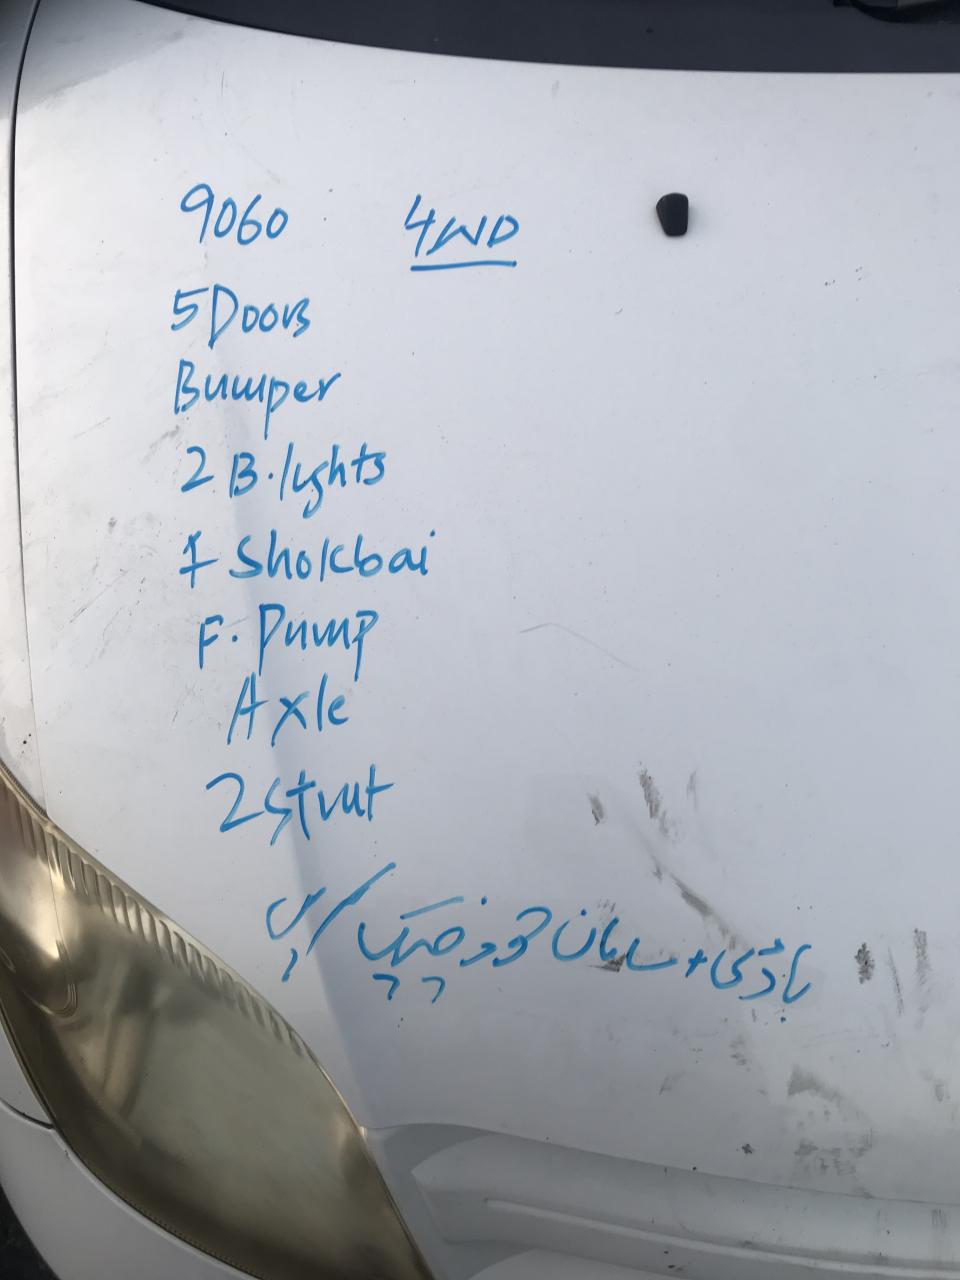 9060 4WD
5 Doors
Bumper
2 B.lights
1 Shokbai
F. Pump
Axle
2 Strut
باڈی + سامان